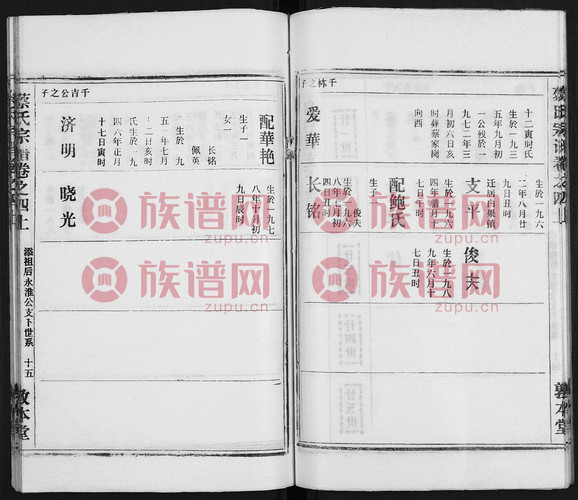 千休之子
十二寅时氏
生於一九三
五年九月初
一公殁於一
九七二年三
月初六日亥
时葬蔡家岗
向西
爱華
生於一九六
二年八月廿
迁居白果镇
支平
生於一九六
四年腊月十
七日午时
配鲍氏
生子一
俊夫
生於一九六
四日丑时
长铭
俊夫
生於一九八
九年六月十
七日丑时
千吉公之子
配華艳
生子一
女一
长铭
佩英
生於一九
五年七月
十二日亥时
氏生於一九
四六年正月
十七日寅时
济明
生於一九七
八年十月初
九日辰时
晓光
蔡氏宗谱卷之四上
添祖后永淮公支下世系
十五
敦本堂
族谱网
zupu.cn
族谱网
zupu.cn
族谱网
zupu.cn
族谱网
zupu.cn